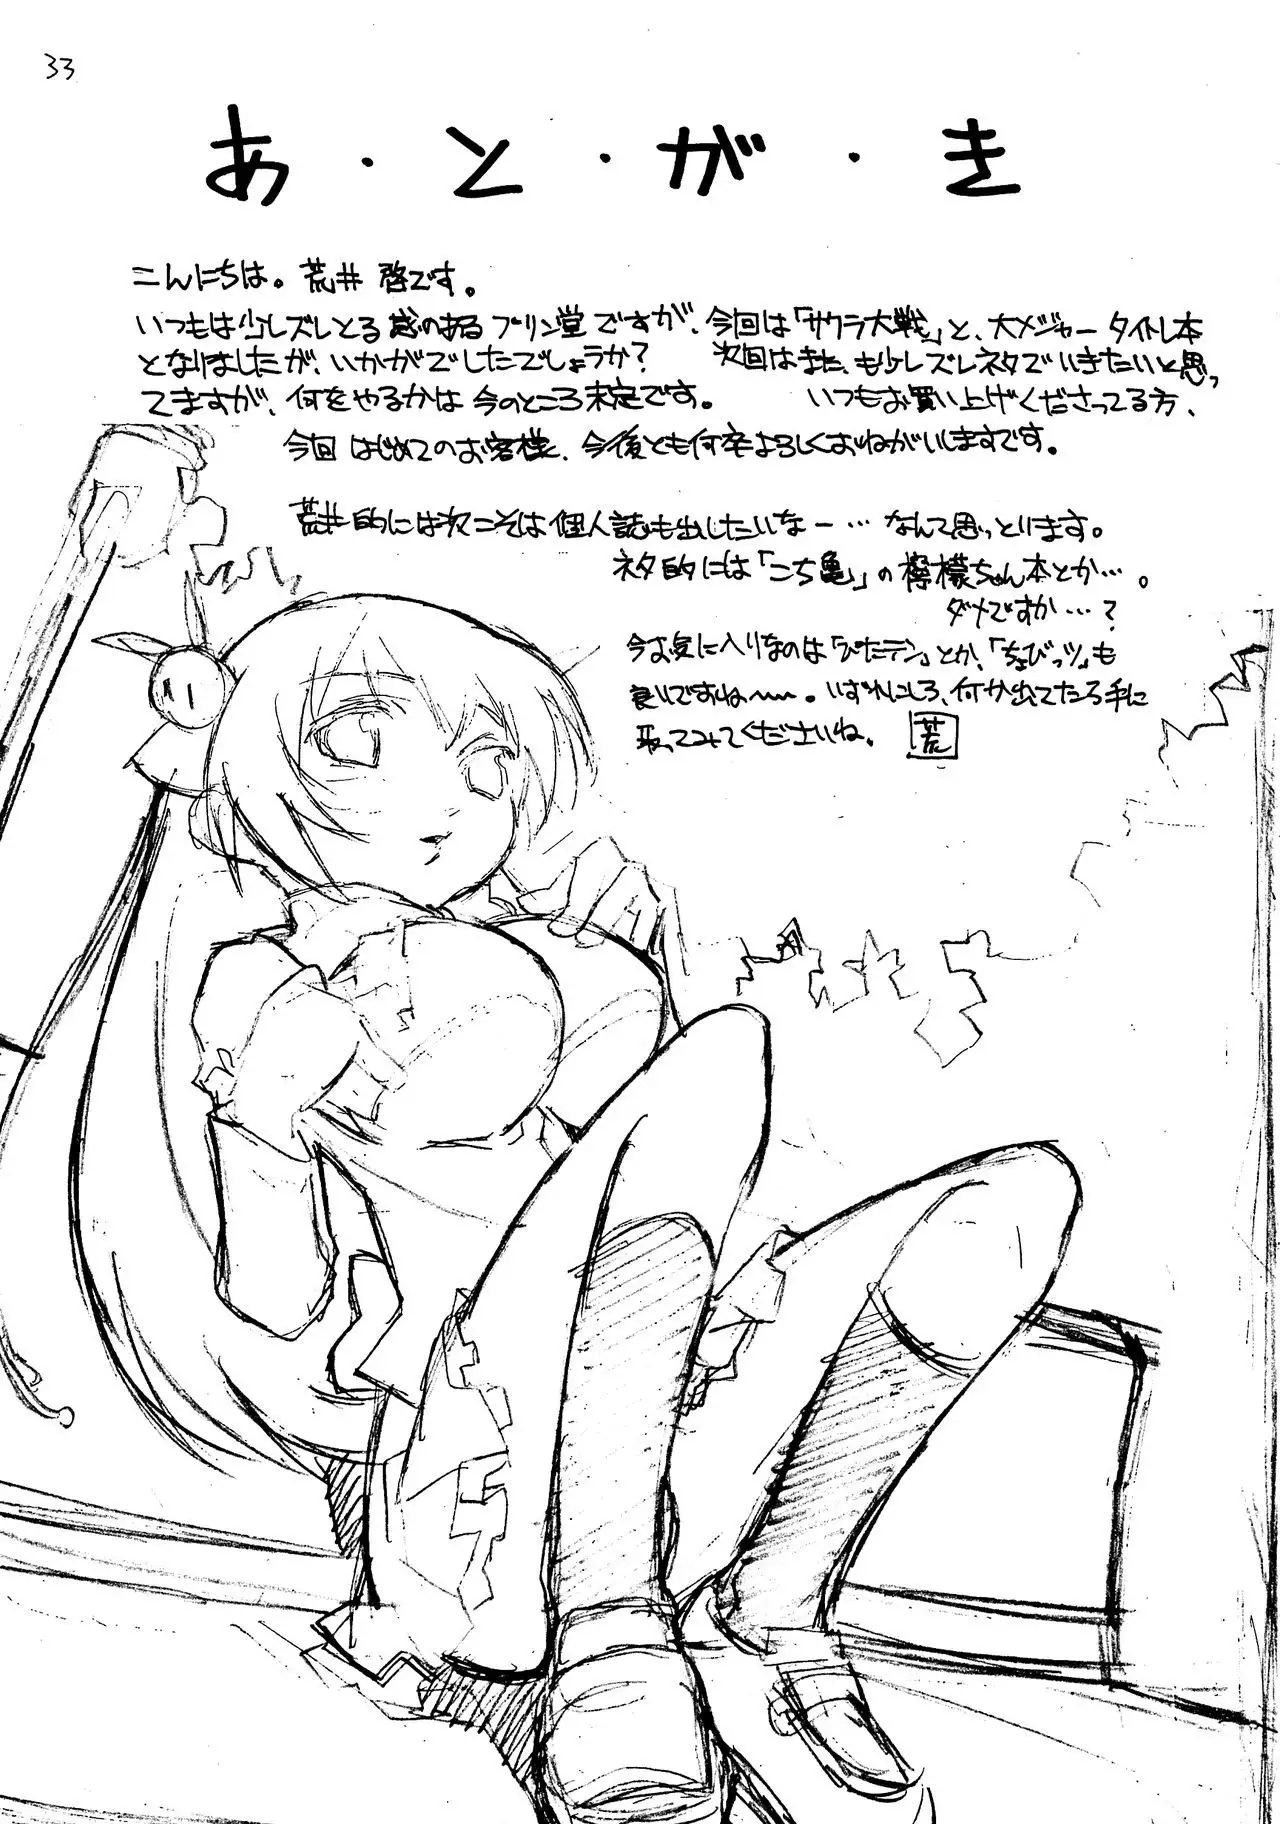 33
あ・と・が・き
こんにちは。荒井 啓です。
いつもは少しズレとる感のあるプリン堂ですが、今回は「サクラ大戦」と、大メジャータイトル本
となりましたが、いかがでしたでしょうか? 次回はまた、も少しズレネタでいきたいと思っ
てますが、何をやるかは今のところ未定です。 いつもお買い上げくださってる方、
今回はじめてのお客様、今後とも何卒よろしくおねがいしますです。
荒井的には次こそは個人誌も出したいなー…なんて思っとります。
ネタ的には「こち亀」の檸檬ちゃん本とか…。
ダメですか…?
今お気に入りなのは「ぴたテン」とか、「ちょびっツ」も
良いですね〜〜。いずれにしろ、何か出てたら手に
取ってみてくださいね。 荒